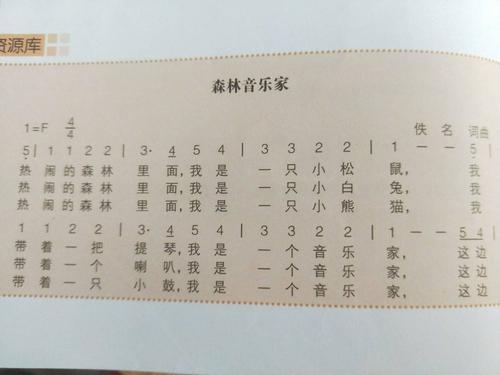 资源库
森林音乐家
1=F 4/4 佚 名 词曲
5̣ | 1 1 2 2 | 3· 4̲ 5 4 | 3 3 2 2 | 1 — — 5̣ |
热 闹的森林 里 面,我 是 一 只 小 松 鼠, 我
热 闹的森林 里 面,我 是 一 只 小 白 兔, 我
热 闹的森林 里 面,我 是 一 只 小 熊 猫, 我
1 1 2 2 | 3· 4̲ 5 4 | 3 3 2 2 | 1 — — 5̲ 4̲
带 着 一 把 提 琴,我 是 一 个 音 乐 家, 这边
带 着 一 个 喇 叭,我 是 一 个 音 乐 家, 这边
带 着 一 只 小 鼓,我 是 一 个 音 乐 家, 这边